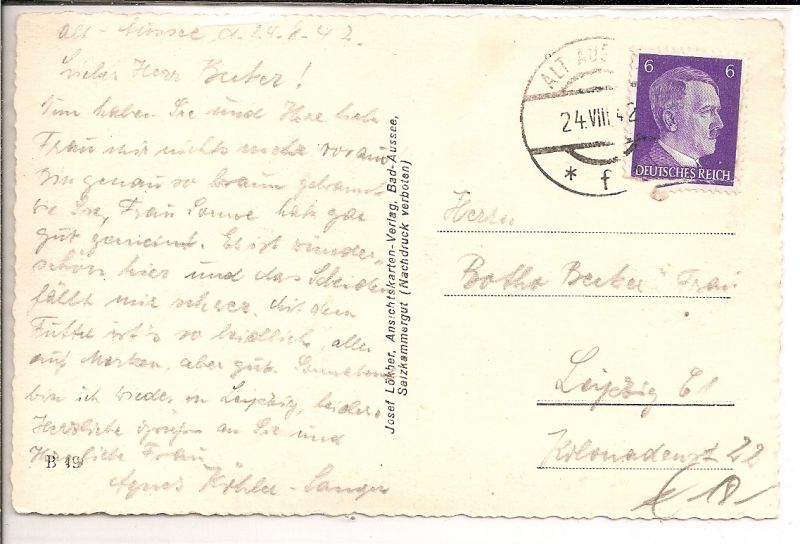 Alt-Aussee d. 24.8.42.
Lieber Herr Becker!
Nun haben Sie und Ihre liebe
Frau mir nichts mehr voraus
Bin genau so braun gebrannt
wie Sie, Frau Sonne hat gar
gut gemeint. Es ist wunder
schön hier und das Scheiden
fällt mir schwer. Mit dem
Futter ist's so leidlich, alles
auf Marken, aber gut. Sonnabend
bin ich wieder in Leipzig, leider.
Herzliche Grüße an Sie und
Frau
Agnes Köhler-Langer
B 19
Josef Lökher, Ansichtskarten-Verlag, Bad-Aussee,
Salzkammergut (Nachdruck verboten)
ALT AUS
24.VIII.42
* f
6 6
DEUTSCHES REICH
Herrn
Botho Becker u Frau
Leipzig C1
Kolonadenst 22
18